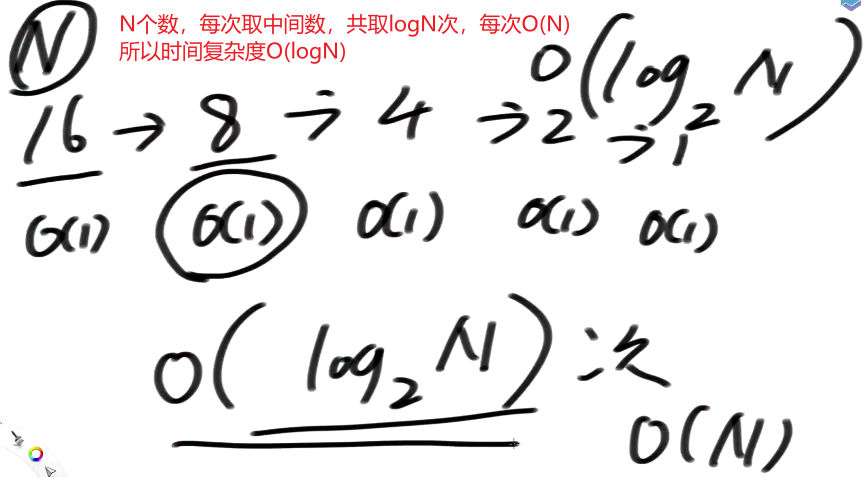 N
N个数，每次取中间数，共取logN次，每次O(N)
所以时间复杂度O(logN)
O(log₂N)
16 → 8 → 4 → 2 → 1
O(1) O(1) O(1) O(1) O(1)
O(log₂N)次
O(N)